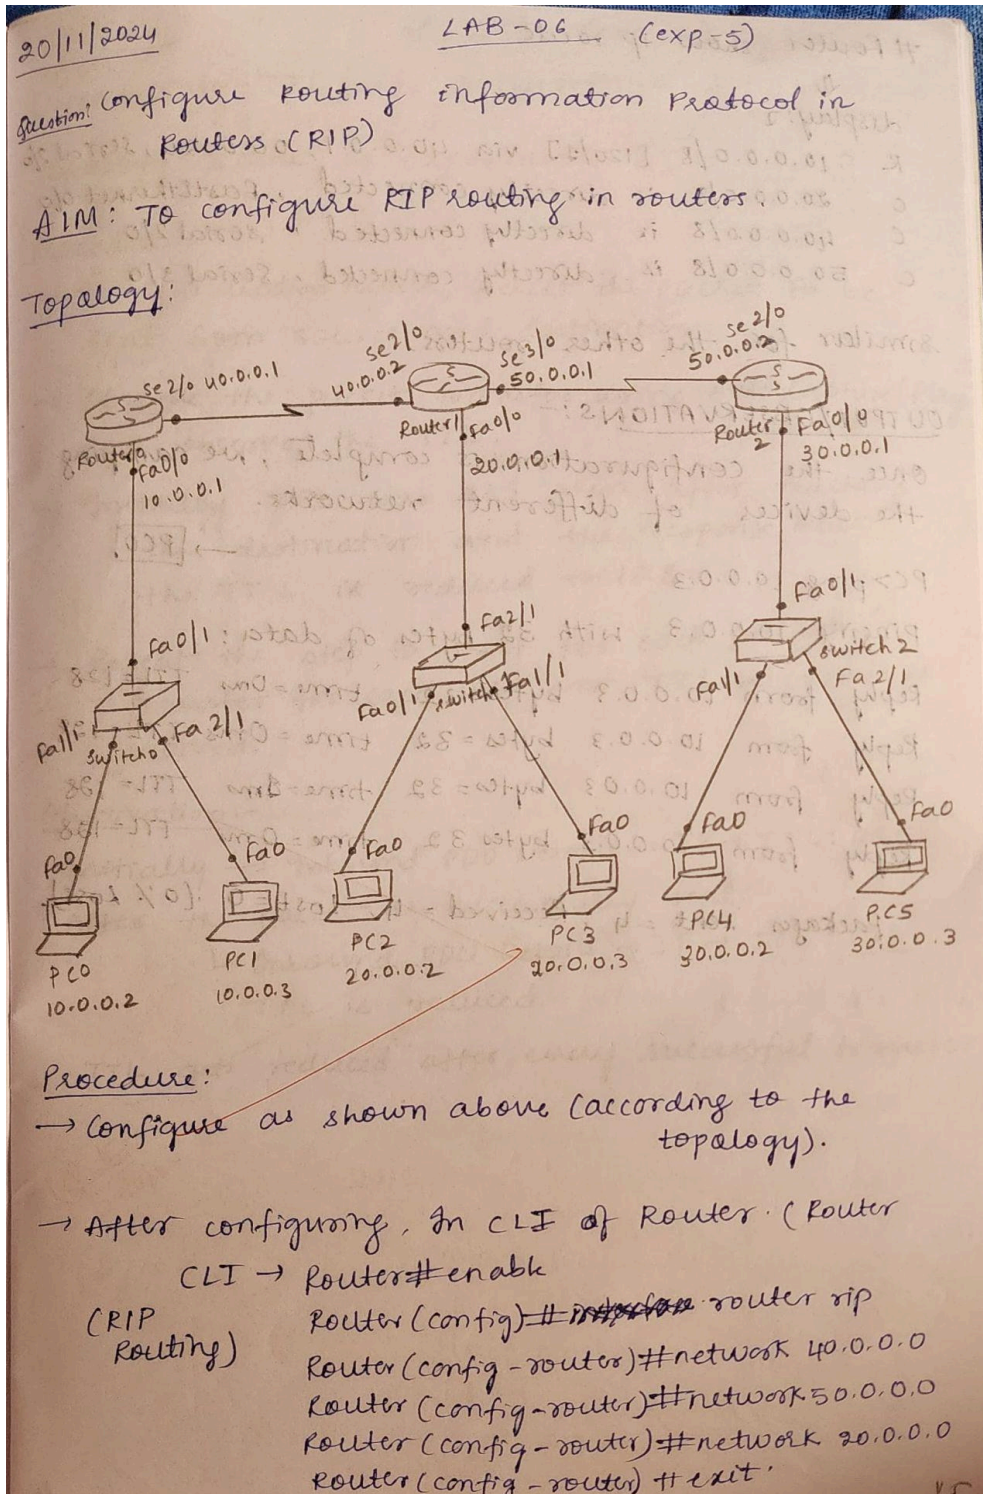 20/11/2024
LAB-06 (exp-5)
Question: Configure Routing information Protocol in
Routers (RIP)
AIM: To configure RIP routing in routers.
Topalogy:
se2/0 40.0.0.1
40.0.0.2 se2/0
se3/0
50.0.0.1
50.0.0.2 se2/0
Router0
fa0/0
10.0.0.1
Router1
fa0/0
20.0.0.1
Router
2
Fa0/0
30.0.0.1
Fa0/1
fa2/1
Fa0/1
Fa1/1
switch0
Fa2/1
Fa0/1
switch1
Fa1/1
switch2
Fa1/1
Fa2/1
Fa0
Fa0
Fa0
Fa0
Fa0
Fa0
PC0
10.0.0.2
PC1
10.0.0.3
PC2
20.0.0.2
PC3
20.0.0.3
PC4
30.0.0.2
PC5
30.0.0.3
Procedure:
→ Configure as shown above (according to the
topalogy).
→ After configuring, In CLI of Router. (Router
CLI → Router#enable
(RIP
Routing)
Router(config)# router rip
Router(config-router)#network 40.0.0.0
Router(config-router)#network 50.0.0.0
Router(config-router)#network 20.0.0.0
Router(config-router)#exit.